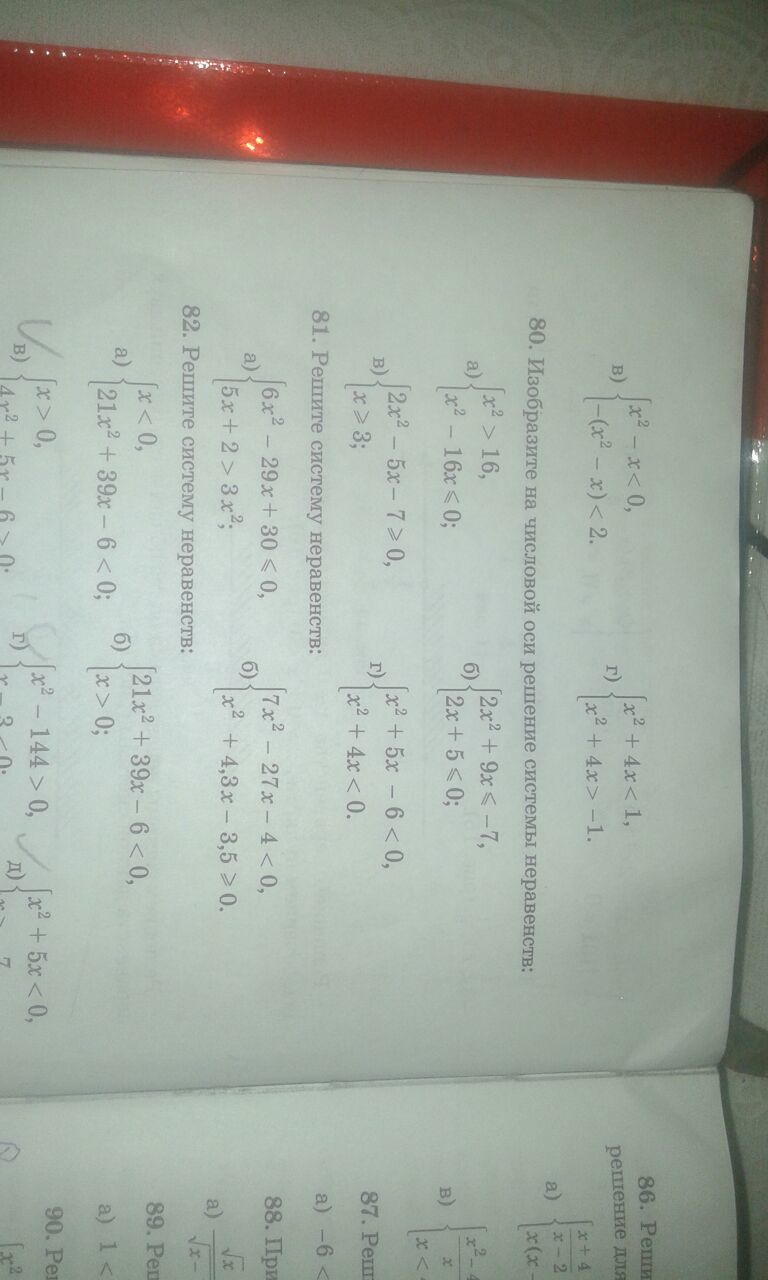 в) { x² − x < 0, г) { x² + 4x < 1,
−(x² − x) < 2. x² + 4x > −1.
80. Изобразите на числовой оси решение системы неравенств:
а) { x² > 16, б) { 2x² + 9x ⩽ −7,
x² − 16x ⩽ 0; 2x + 5 ⩽ 0;
в) { 2x² − 5x − 7 ⩾ 0, г) { x² + 5x − 6 < 0,
x ⩾ 3; x² + 4x < 0.
81. Решите систему неравенств:
а) { 6x² − 29x + 30 ⩽ 0, б) { 7x² − 27x − 4 < 0,
5x + 2 > 3x²; x² + 4,3x − 3,5 ⩾ 0.
82. Решите систему неравенств:
а) { x < 0, б) { 21x² + 39x − 6 < 0,
21x² + 39x − 6 < 0; x > 0;
в) { x > 0, г) { x² − 144 > 0, д) { x² + 5x < 0,
4x² + 5x − 6 > 0; x − 3 < 0;
86. Реши
решение для
а) { x + 4
x − 2
x(x −
в) { x² − 4
x
x <
87. Реши
а) −6 <
88. При
а) √x
√x −
89. Реш
а) 1 <
90. Ре
{ x²